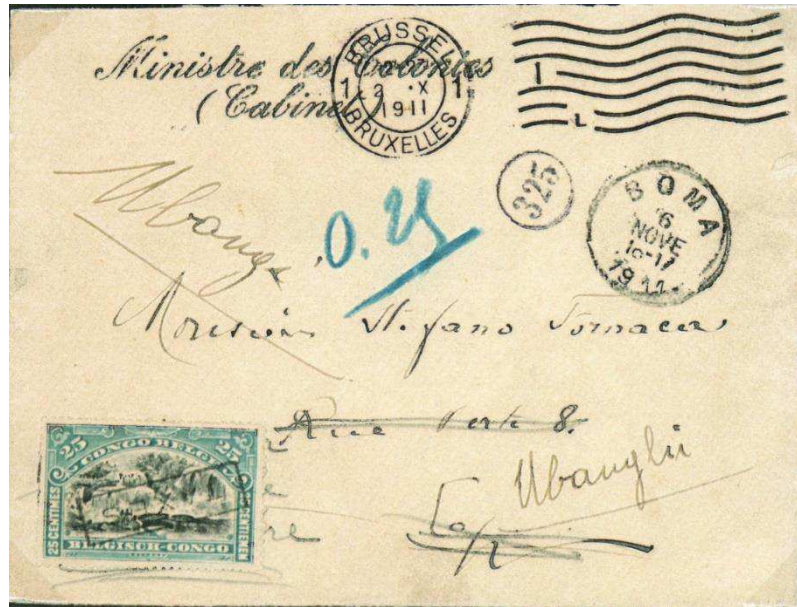 Ministre des Colonies
(Cabinet)
BRUSSEL
1 2 X 1
1911
BRUXELLES
1
L
325
BOMA
6
NOVE
16-17
1911
Ubangi
0.25
Monsieur Stefano
Rue 8.
Ubanghi
25 CONGO BELGE 25
25 CENTIMES
25 CENTIEMEN
BELGISCH-CONGO
re